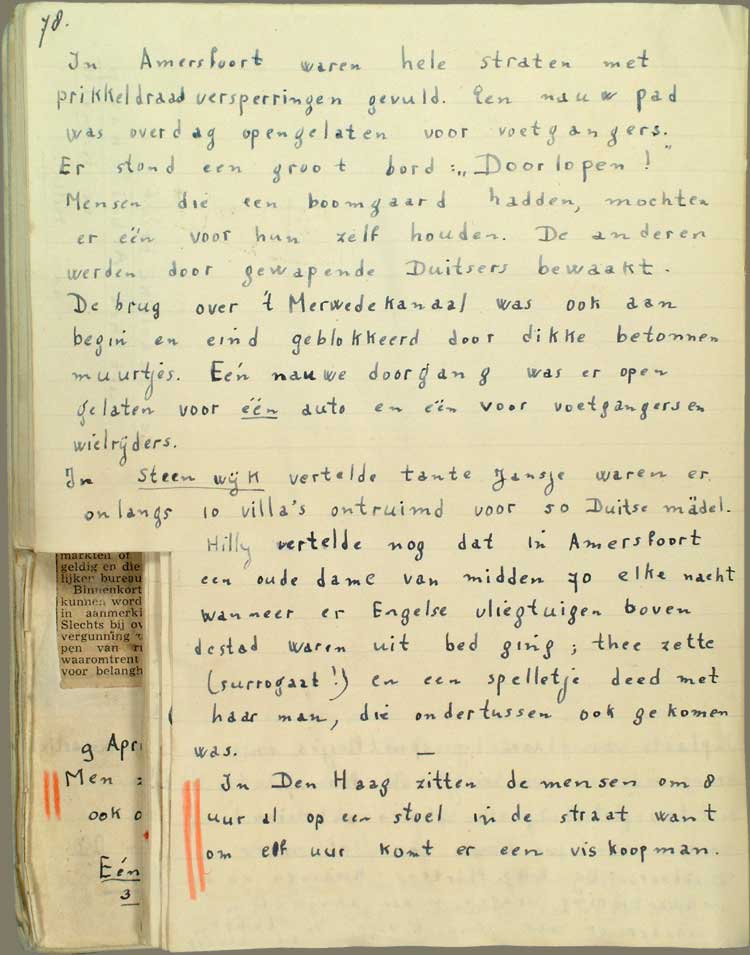 78.
In Amersfoort waren hele straten met
prikkeldraadversperringen gevuld. Een nauw pad
was overdag opengelaten voor voetgangers.
Er stond een groot bord: „Doorlopen!"
Mensen die een boomgaard hadden, mochten
er één voor hun zelf houden. De anderen
werden door gewapende Duitsers bewaakt.
De brug over 't Merwedekanaal was ook aan
begin en eind geblokkeerd door dikke betonnen
muurtjes. Eén nauwe doorgang was er open
gelaten voor één auto en één voor voetgangers en
wielrijders.
In Steenwijk vertelde tante Jansje waren er
onlangs 10 villa's ontruimd voor 50 Duitse mädel.
Hilly vertelde nog dat in Amersfoort
een oude dame van midden 70 elke nacht
wanneer er Engelse vliegtuigen boven
de stad waren uit bed ging; thee zette
(surrogaat!) en een spelletje deed met
haar man, die ondertussen ook gekomen
was. —
In Den Haag zitten de mensen om 8
uur al op een stoel in de straat want
om elf uur komt er een viskoopman.
markten of
geldig en die
lijker bureau
Binnenkort
kunnen word
in aanmerki
Slechts bij ov
vergunning
pen van
waaromtrent
voor belangh
9 Apri
Men
ook
Eén
3